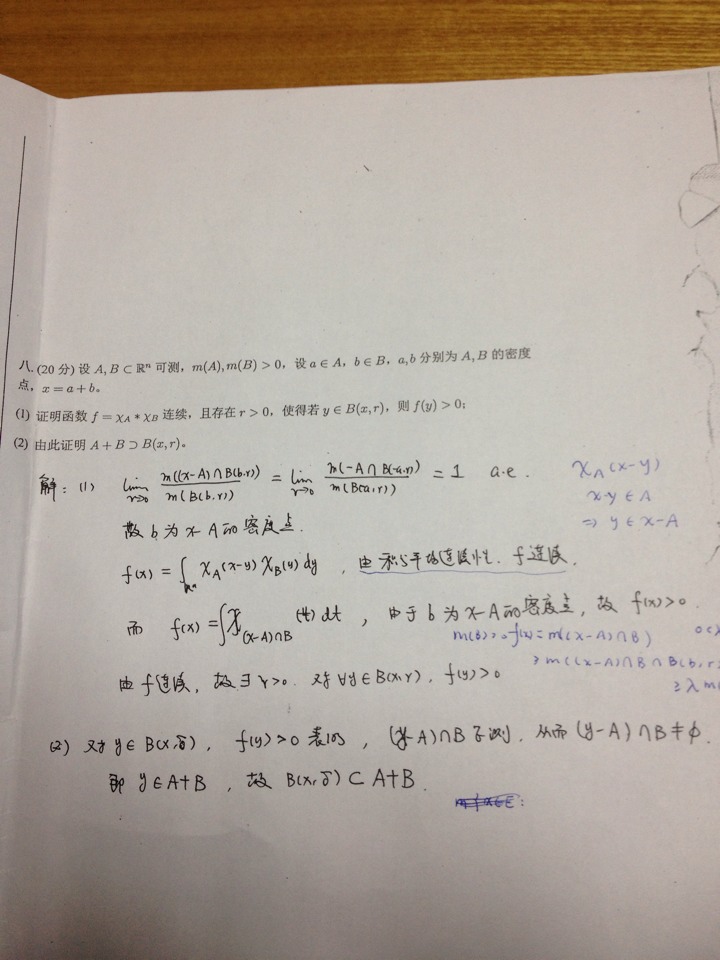 八. (20 分) 设 A, B ⊂ ℝⁿ 可测，m(A), m(B) > 0，设 a ∈ A，b ∈ B，a, b 分别为 A, B 的密度
点，x = a + b。
(1) 证明函数 f = χ_A * χ_B 连续，且存在 r > 0，使得若 y ∈ B(x, r)，则 f(y) > 0;
(2) 由此证明 A + B ⊃ B(x, r)。
解: (1) lim_{r→0} m((x-A)∩B(b,r))/m(B(b,r)) = lim_{r→0} m(-A∩B(-a,r))/m(B(a,r)) = 1 a.e.
χ_A(x-y)
x-y ∈ A
⇒ y ∈ x-A
故 b 为 x-A 的密度点.
f(x) = ∫_{ℝⁿ} χ_A(x-y) χ_B(y) dy , 由积分平均连续性. f连续.
而 f(x) = ∫χ_{(x-A)∩B}(t) dt , 由于 b 为 x-A的密度点, 故 f(x)>0.
m(B)>0 f(x)=m((x-A)∩B)
≥m((x-A)∩B∩B(b,r
≥λm(
由 f连续, 故∃r>0. 对∀y∈B(x,r), f(y)>0
(2) 对 y∈B(x,δ), f(y)>0 表明, (y-A)∩B 可测. 从而 (y-A)∩B≠φ.
即 y∈A+B , 故 B(x,δ)⊂A+B.